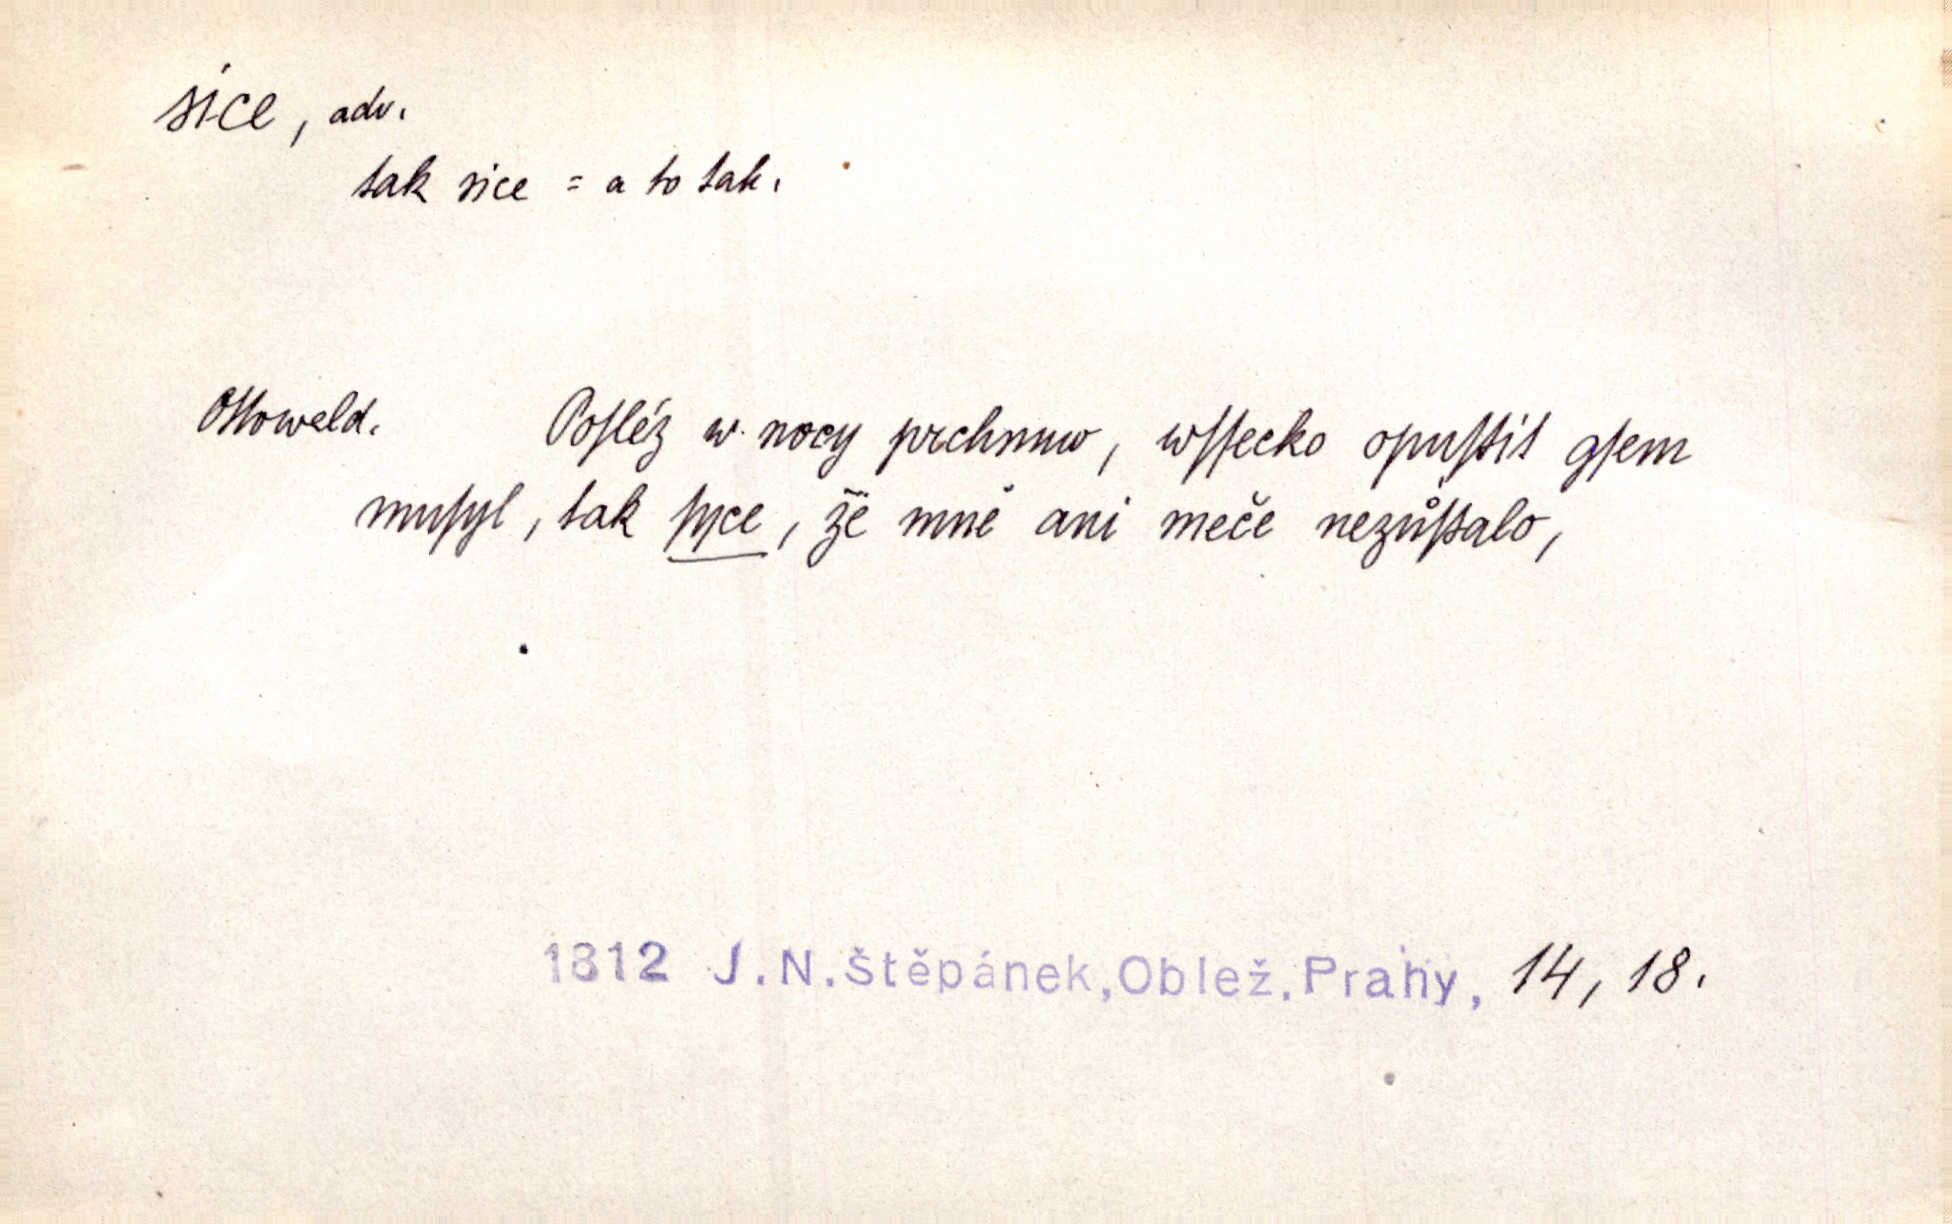 sice, adv.
tak sice = a to tak.
Ottoweld. Poſléz w nocy prchnuw, wſſecko opuſtit gſem
muſyl, tak ſyce, že mně ani meče nezůſtalo,
1812 J.N.Štěpánek,Oblež.Prahy, 14, 18.